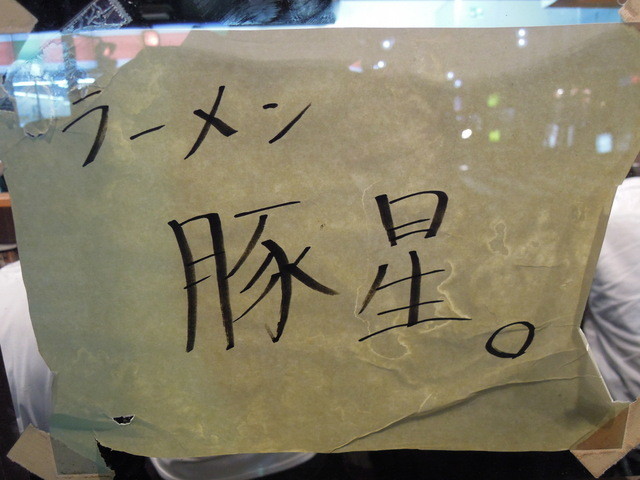 ラーメン
豚星。